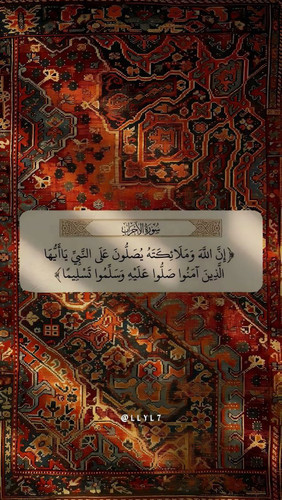 سورة الأحزاب
﴿إِنَّ اللَّهَ وَمَلَائِكَتَهُ يُصَلُّونَ عَلَى النَّبِيِّ يَاأَيُّهَا
الَّذِينَ آمَنُوا صَلُّوا عَلَيْهِ وَسَلِّمُوا تَسْلِيمًا﴾
@LLYL7